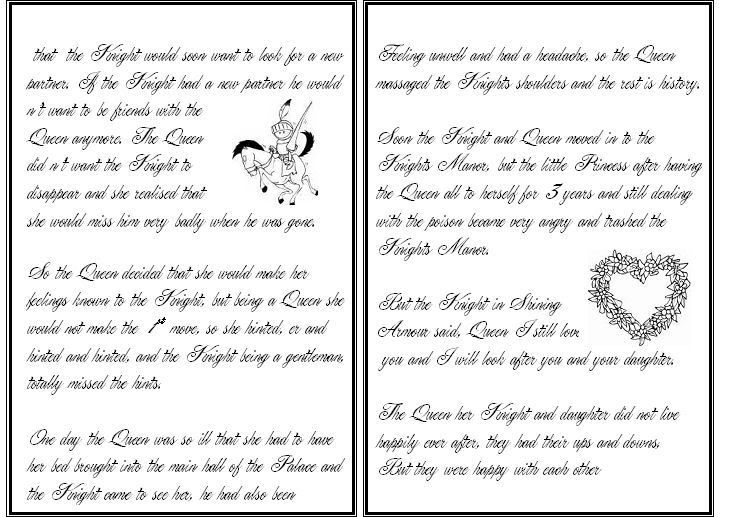 that the Knight would soon want to look for a new
partner. If the Knight had a new partner he would
n't want to be friends with the
Queen anymore. The Queen
did n't want the Knight to
disappear and she realised that
she would miss him very badly when he was gone.
So the Queen decided that she would make her
feelings known to the Knight, but being a Queen she
would not make the 1st move, so she hinted, er and
hinted and hinted, and the Knight being a gentleman,
totally missed the hints.
One day the Queen was so ill that she had to have
her bed brought into the main hall of the Palace and
the Knight came to see her, he had also been
Feeling unwell and had a headache, so the Queen
massaged the Knights shoulders and the rest is history.
Soon the Knight and Queen moved in to the
Knights Manor, but the little Princess after having
the Queen all to herself for 3 years and still dealing
with the poison became very angry and trashed the
Knights Manor.
But the Knight in Shining
Armour said, Queen I still love
you and I will look after you and your daughter.
The Queen her Knight and daughter did not live
happily ever after, they had their ups and downs,
But they were happy with each other